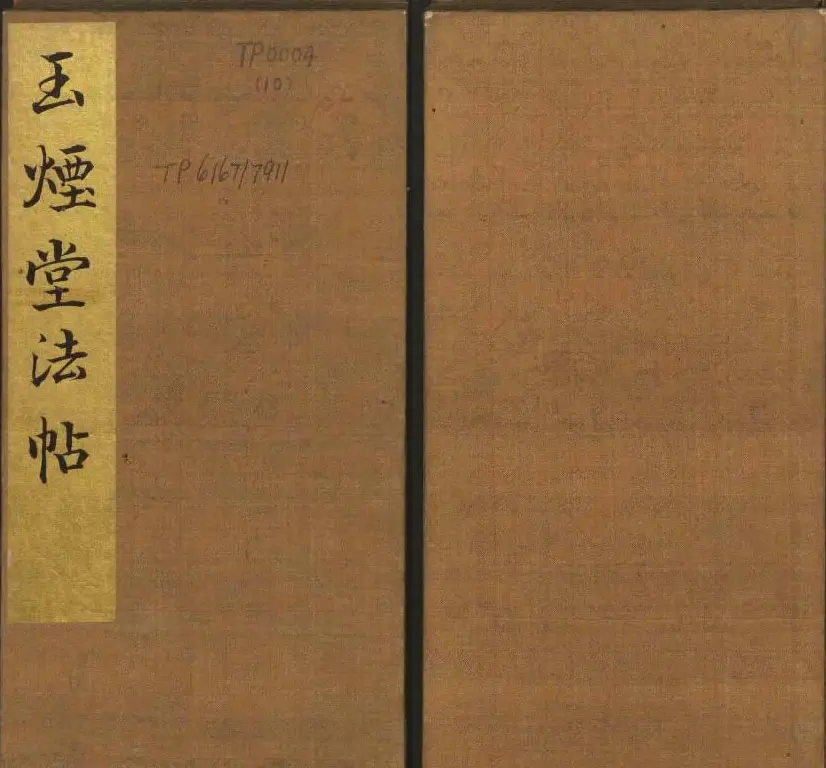 玉煙堂法帖
TP0004
(10)
TP6167/7911